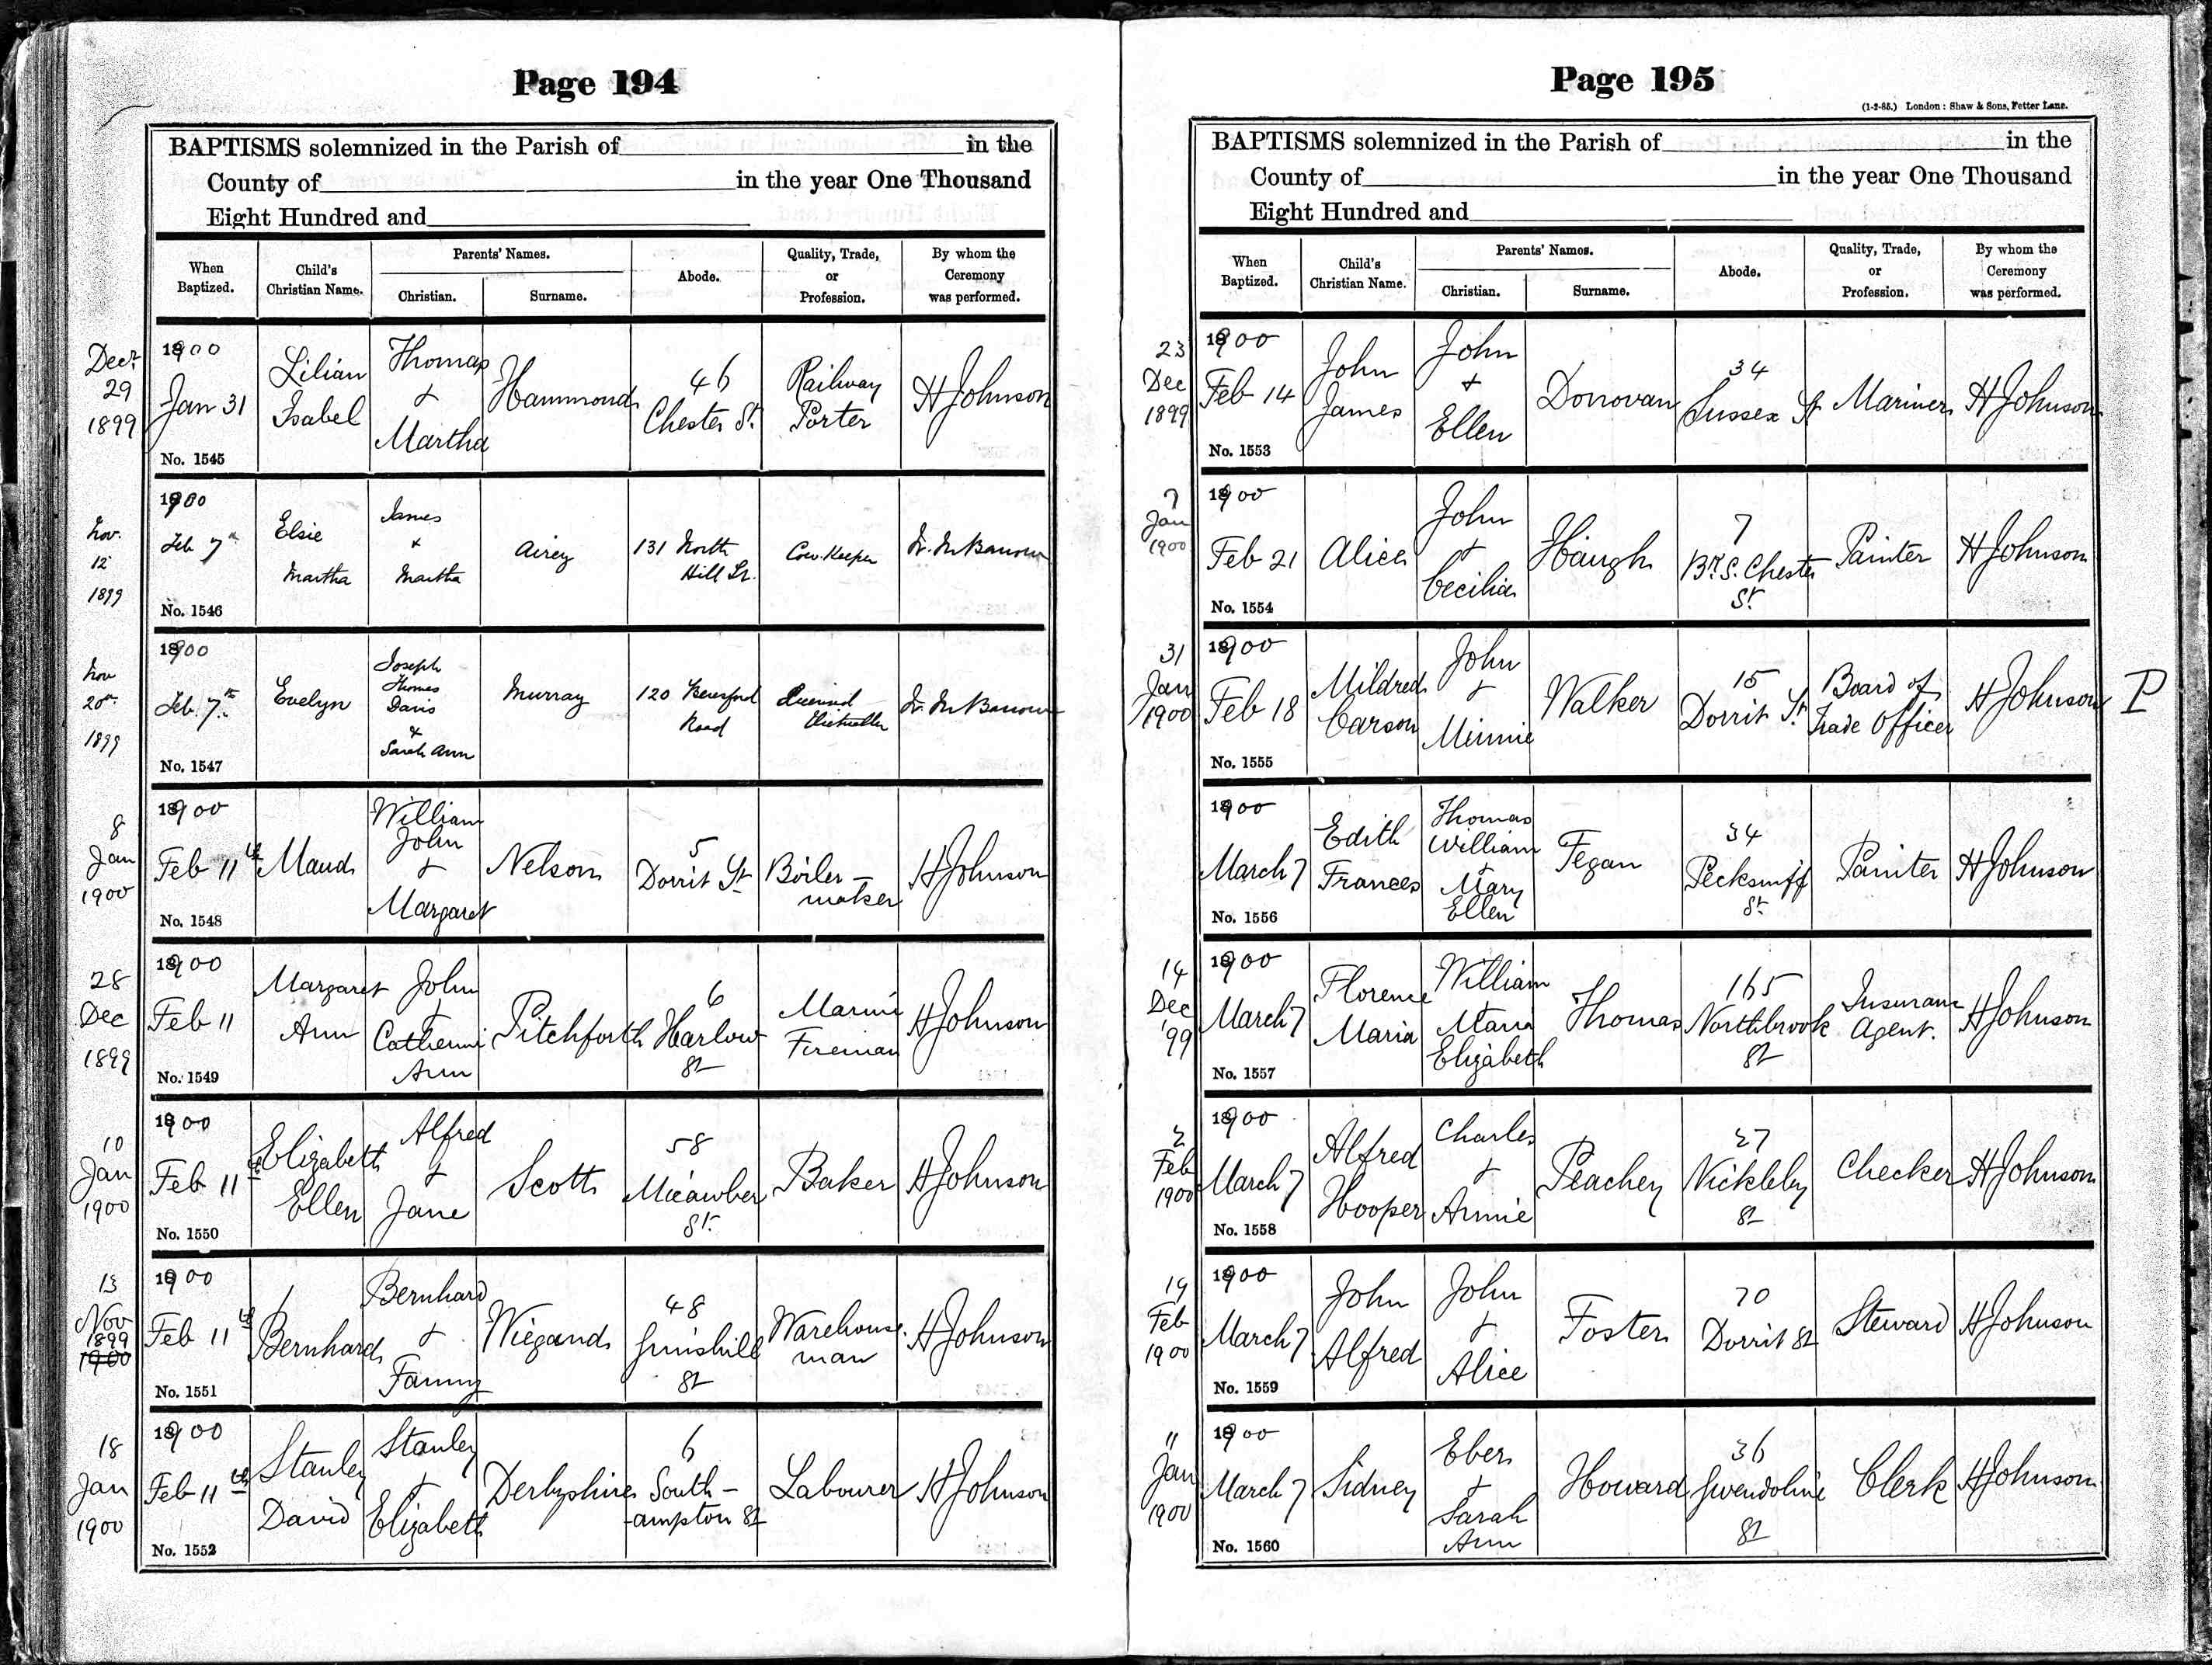 Page 194
BAPTISMS solemnized in the Parish of in the
County of in the year One Thousand
Eight Hundred and
When Baptized.
Child's Christian Name.
Parents' Names.
Christian.
Surname.
Abode.
Quality, Trade, or Profession.
By whom the Ceremony was performed.
Decr 29 1899
1900
Jan 31
No. 1545
Lilian Isabel
Thomas + Martha
Hammond
46 Chester St
Railway Porter
H Johnson
Nov. 12 1899
1900
Feb 7th
No. 1546
Elsie Martha
James + Martha
Airey
131 North Hill St.
Cow Keeper
Nov 20th 1899
1900
Feb. 7th
No. 1547
Evelyn
Joseph Thomas Davis & Sarah Ann
Murray
120 Beresford Road
Licensed Victualler
8 Jan 1900
1900
Feb 11th
No. 1548
Maud
William John + Margaret
Nelson
5 Dorrit St
Boiler-maker
H Johnson
28 Dec 1899
1900
Feb 11
No. 1549
Margaret Ann
John + Catherine Ann
Pitchforth
6 Harlow St
Marine Fireman
H Johnson
10 Jan 1900
1900
Feb 11th
No. 1550
Elizabeth Ellen
Alfred + Jane
Scott
58 Micawber St.
Baker
H Johnson
13 Nov 1899 1900
1900
Feb 11th
No. 1551
Bernhard
Bernhard + Fanny
Wiegand
48 Grinshill St
Warehouse man
H Johnson
18 Jan 1900
1900
Feb 11th
No. 1552
Stanley David
Stanley + Elizabeth
Derbyshire
6 South-ampton St
Labourer
H Johnson
Page 195
(1-2-85.) London: Shaw & Sons, Fetter Lane.
BAPTISMS solemnized in the Parish of in the
County of in the year One Thousand
Eight Hundred and
When Baptized.
Child's Christian Name.
Parents' Names.
Christian.
Surname.
Abode.
Quality, Trade, or Profession.
By whom the Ceremony was performed.
23 Dec 1899
1900
Feb 14
No. 1553
John James
John + Ellen
Donovan
34 Sussex St
Mariner
H Johnson
7 Jan 1900
1900
Feb 21
No. 1554
Alice
John + Cecilia
Haugh
7 Bk. S. Chester St.
Painter
H Johnson
31 Jan 1900
1900
Feb 18
No. 1555
Mildred Carson
John + Minnie
Walker
15 Dorrit St
Board of Trade Officer
H Johnson
P
1900
March 7
No. 1556
Edith Frances
Thomas William + Mary Ellen
Fegan
34 Pecksniff St.
Painter
H Johnson
14 Dec '99
1900
March 7
No. 1557
Florence Maria
William + Maria Elizabeth
Thomas
165 Northbrook St
Insurance Agent.
H Johnson
2 Feb 1900
1900
March 7
No. 1558
Alfred Hooper
Charles + Annie
Peachey
27 Nickleby St
Checker
H Johnson
19 Feb 1900
1900
March 7
No. 1559
John Alfred
John + Alice
Foster
70 Dorrit St
Steward
H Johnson
11 Jan 1900
1900
March 7
No. 1560
Sidney
Eber + Sarah Ann
Howard
36 Gwendoline St
Clerk
H Johnson